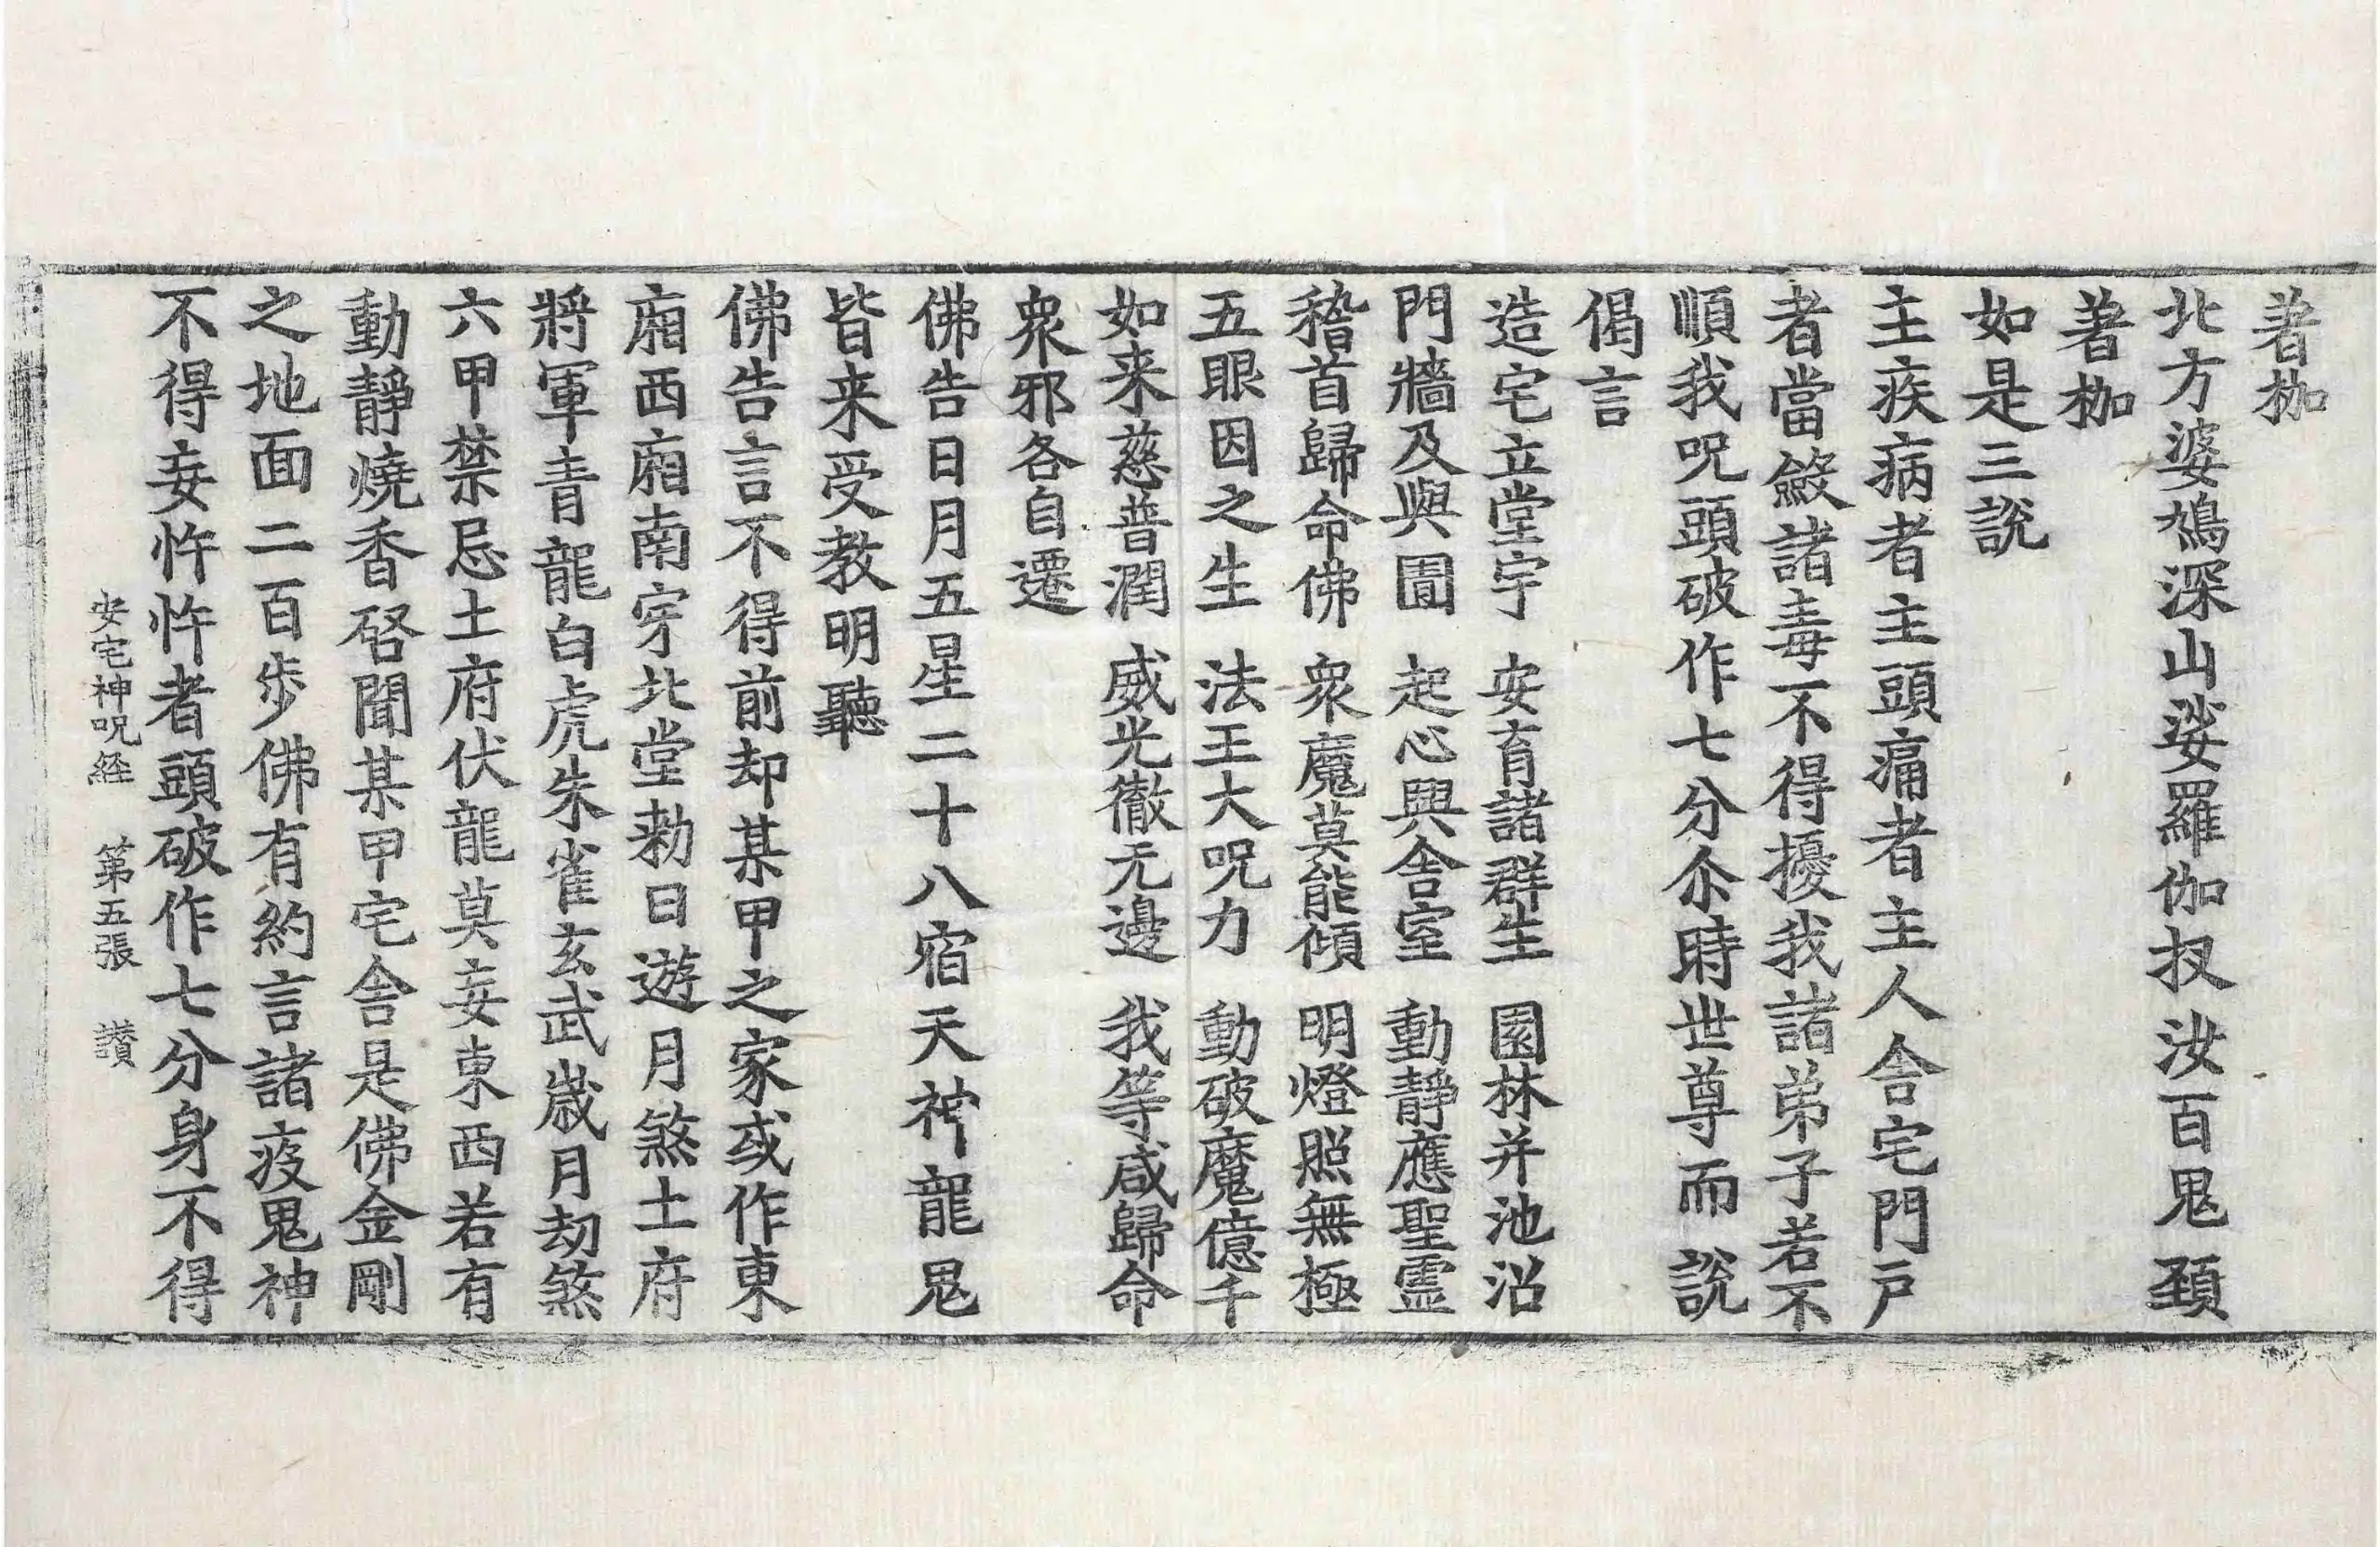 著枷
北方婆鳩深山娑羅伽扠汝百鬼頚
著枷
如是三說
主疾病者主頭痛者主人舎宅門戶
者當斂諸毒不得擾我諸弟子若不
順我呪頭破作七分尒時世尊而說
偈言
造宅立堂宇　安育諸群生　園林并池沼
門牆及與圊　起心興舎室　動靜應聖靈
稽首歸命佛　衆魔莫能傾　明燈照無極
五眼因之生　法王大呪力　動破魔億千
如来慈普潤　威光徹无邊　我等咸歸命
衆邪各自遷
佛告日月五星二十八宿天神龍鬼
皆来受教明聽
佛告言不得前却某甲之家或作東
廂西廂南庌北堂勅日遊月煞土府
將軍青龍白虎朱雀玄武歲月劫煞
六甲禁忌土府伏龍莫妄東西若有
動靜燒香啓聞某甲宅舎是佛金剛
之地面二百步佛有約言諸疫鬼神
不得妄忤忤者頭破作七分身不得
安宅神呪経　第五張　讃